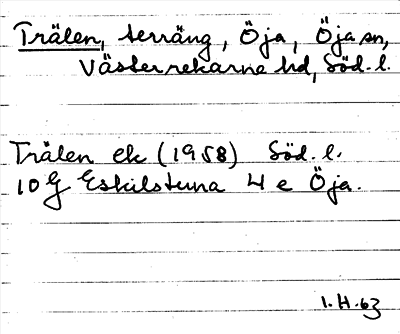 Trälen, terräng, Öja, Öja sn,
Västerrekarne hd, Söd. l.
Trälen ek (1958) Söd. l.
10 G Eskilstuna 4 e Öja.
1.H.63